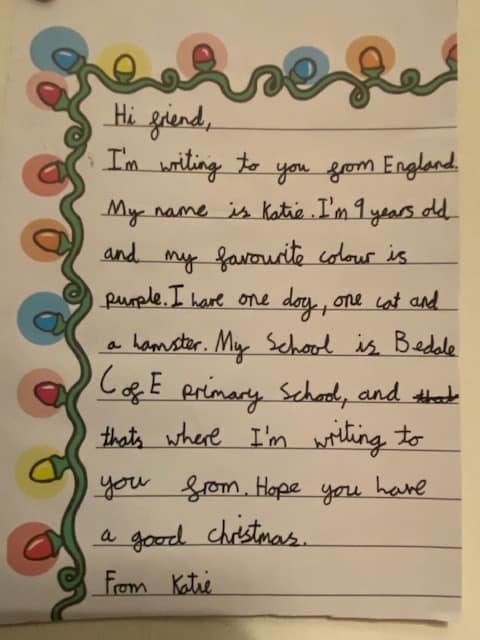 Hi friend,
I'm writing to you from England.
My name is Katie. I'm 9 years old
and my favourite colour is
purple. I have one dog, one cat and
a hamster. My School is Bedale
C of E primary School, and that
thats where I'm writing to
you from. Hope you have
a good christmas.
From Katie